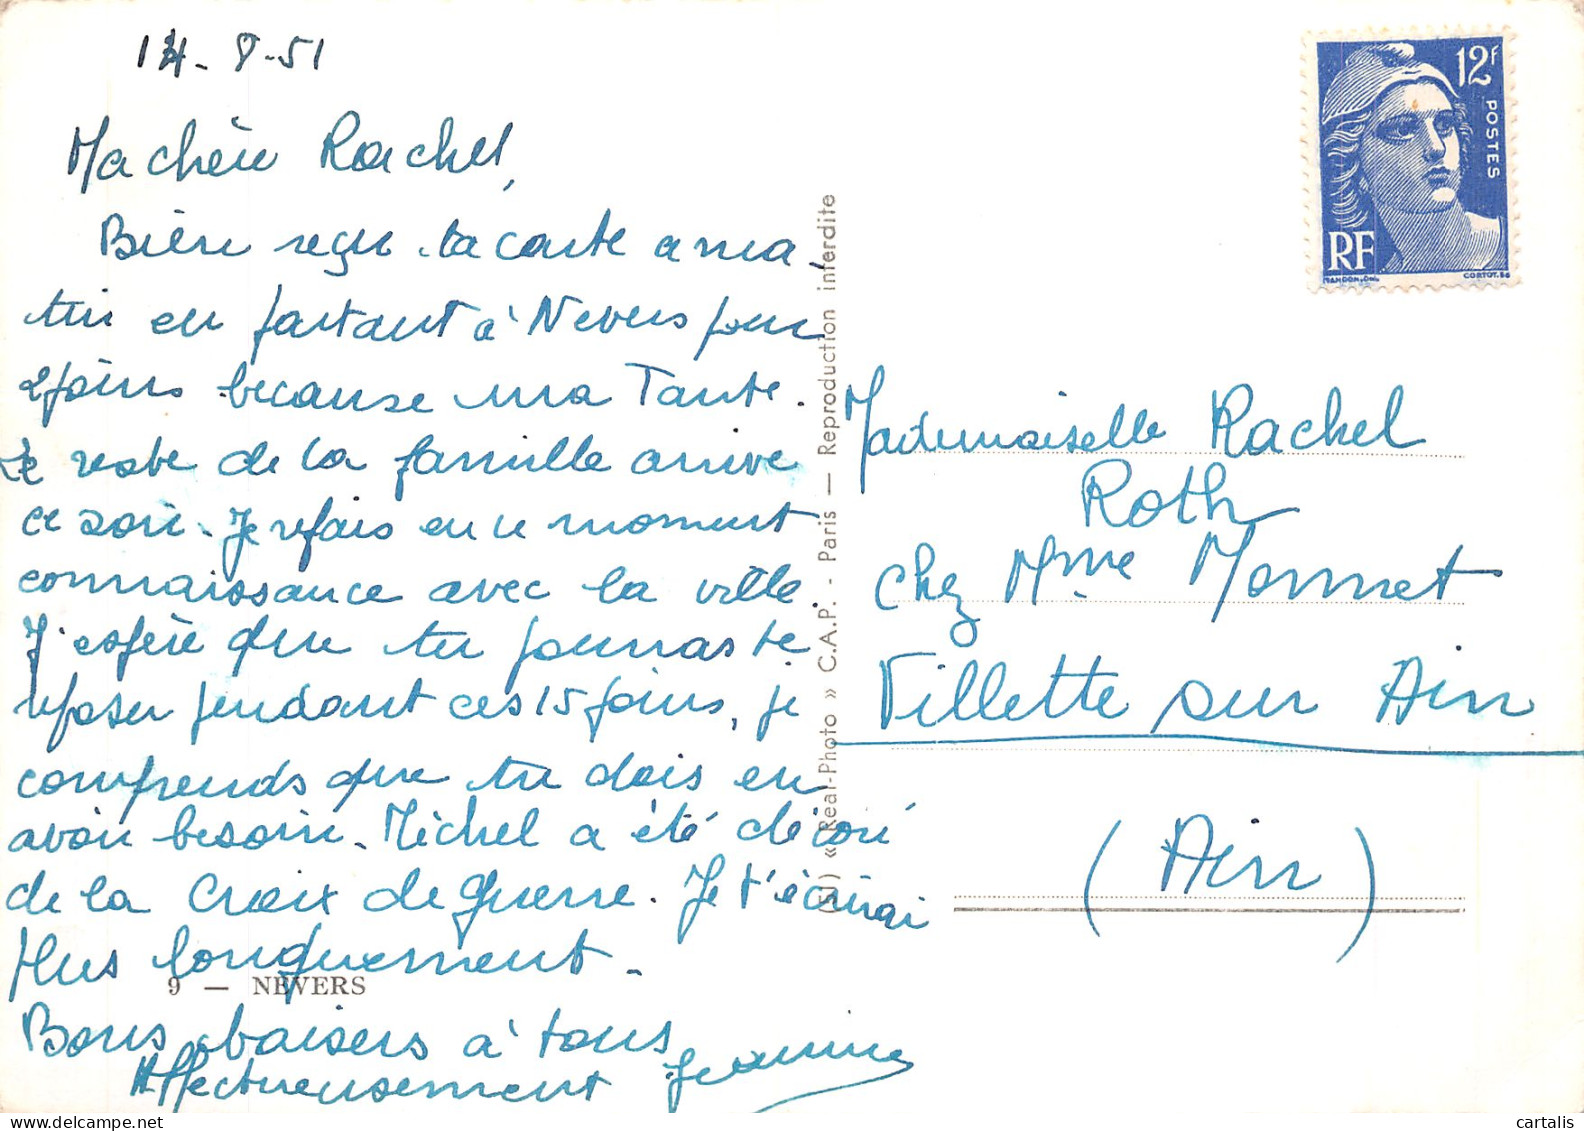 14-8-51
Ma chère Rachel,
Bien reçu ta carte ce ma-
tin en partant à Nevers pour
2 jours because ma Tante.
Le reste de la famille arrive
ce soir. Je refais en ce moment
connaissance avec la ville
J'espère que tu pourras te
reposer pendant ces 15 jours, je
comprends que tu dois en
avoir besoin. Michel a été décoré
de la Croix de guerre. Je t'écrirai
plus longuement.
9 — NEVERS
Bons baisers à tous
Affectueusement Jeannine
(SJ) « Real-Photo » C.A.P. - Paris — Reproduction interdite
12F
POSTES
RF
GANDON, Del.
CORTOT. SC
Mademoiselle Rachel
Roth
chez Mme Monnet
Villette sur Ain
(Ain)
cartalis